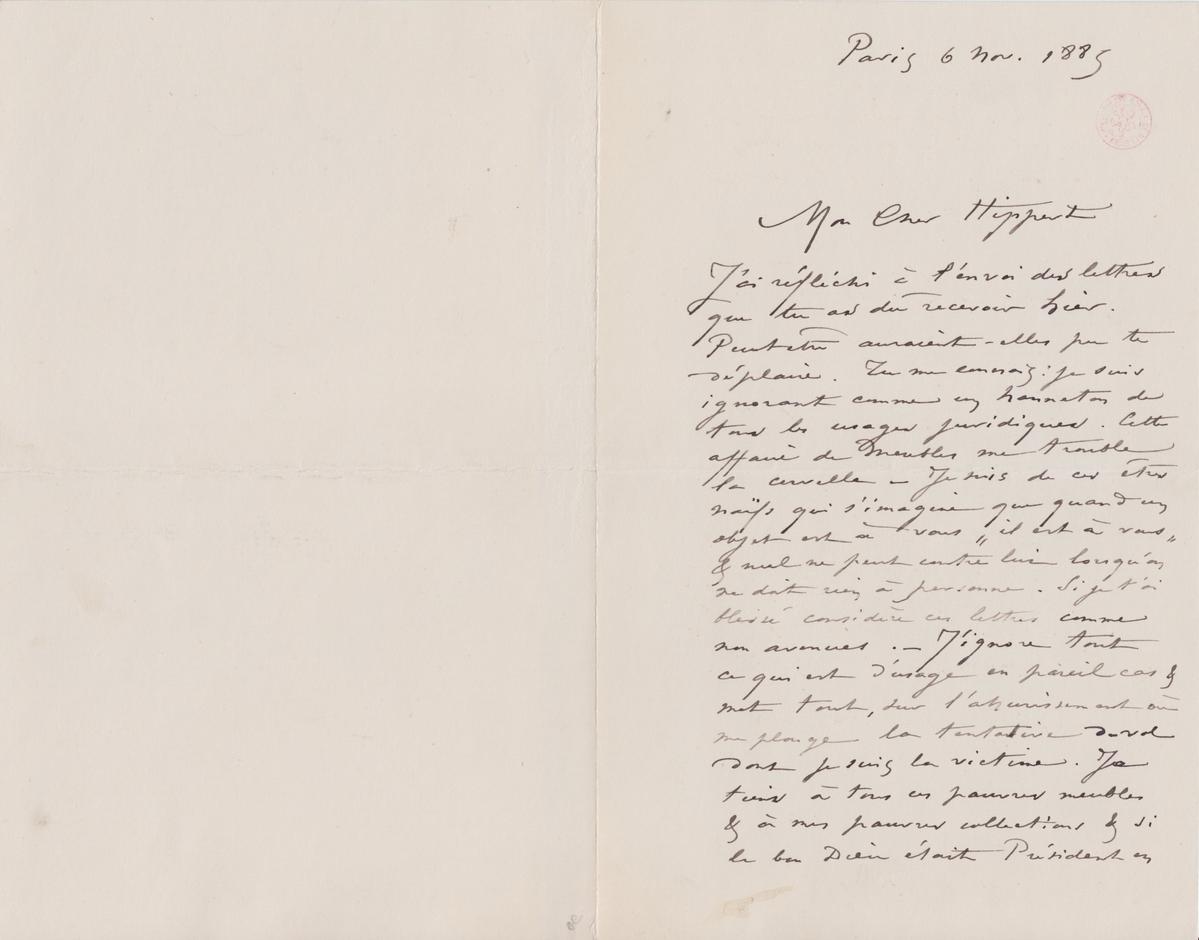 Paris 6 Nov. 1885
Mon Cher Hippert
J'ai réfléchi à l'envoi des lettres
que tu as dû recevoir hier.
Peutetre auraient-elles pu te
déplaire. Tu me connais: je suis
ignorant comme un hanneton de
tous les usages juridiques. Cette
affaire de Meubles me trouble
la cervelle – Je suis de ces êtres
naïfs qui s'imagine que quand un
objet est à vous „il est à vous„
& nul ne peut contre lui lorsqu'on
ne doit rien à personne. Si je t'ai
blessé considère ces lettres comme
non avenues. – J'ignore tout
ce qui est d'usage en pareil cas &
met tout, sur l'ahurissement où
me plonge la tentative de vol
dont je suis la victime. Je
tiens à tous ces pauvres meubles
& à mes pauvres collections & si
le bon Dieu était Président en